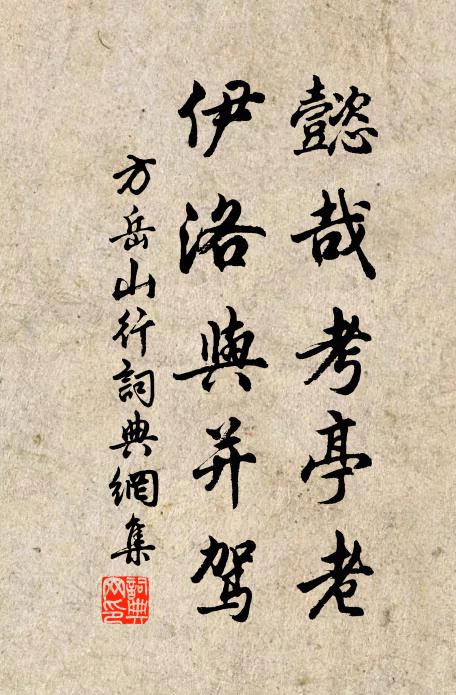 懿哉考亭老
伊洛與并駕
方岳山行詞典網集
詞典網印